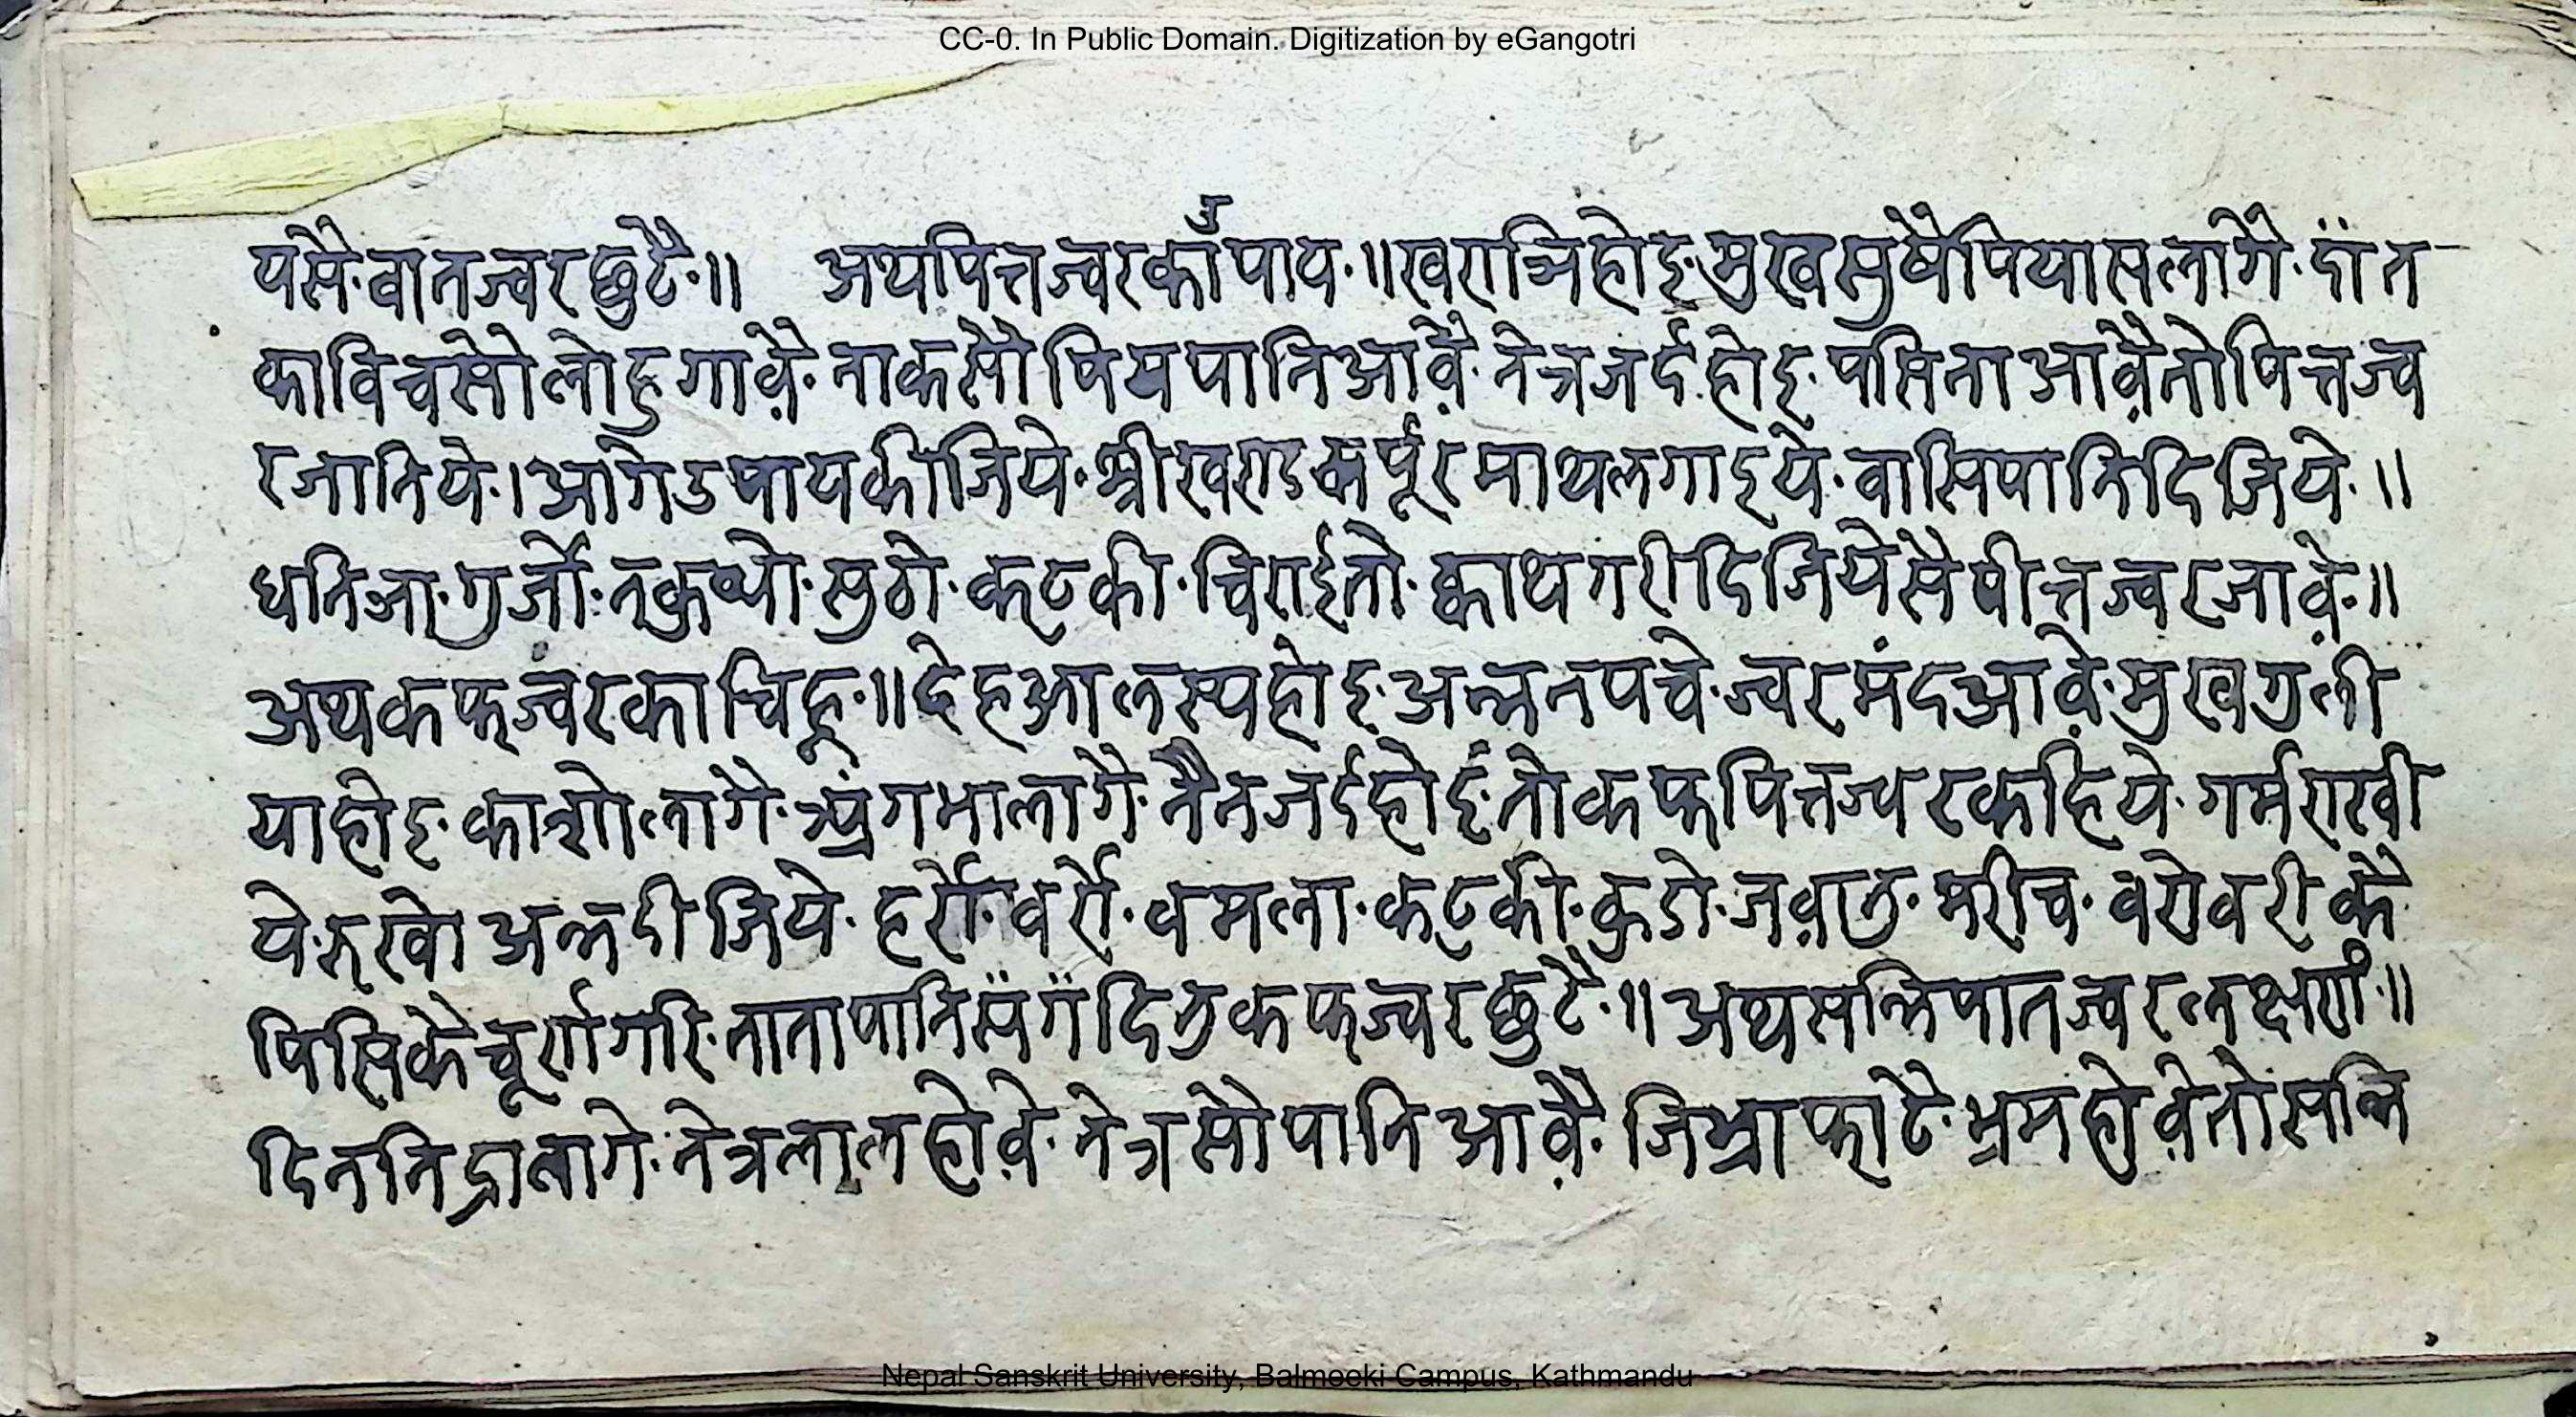 CC-0. In Public Domain. Digitization by eGangotri
यसै· वातज्वर छुटै·॥ अथपित्तज्वरकाउँपाय·॥ होइ मुखसुषैपियासलागै· दाँत
काविचसोलोहुगावै़· नाकसौ पानिआवै़· नेत्रजर्दहोइ· पसिनाआवै़तोपित्तज्व
रजानिये·। आगेउपायकीजिये· श्रीखण्डकर्पूरमाथलगाइये· वासिपानिदिजिये·॥
धनिञा· गुर्जो· सुठो· कटकी· चिराईतो· क्वाथगरीदिजियेसैपीत्तज्वरजावे़·॥
अथकफज्वरकाचिह्न·॥ देहआलस्यहोइ· अन्ननपचे· ज्वरमंदआवे़· मुखगुली
याहोइ· लागै· नैनजर्दहोई· तोकफपित्तज्वरकहिये· गर्मराखी
ये· रुखो अन्नदीजिये· हर्रो· वर्रो· वमला· कटकी· कुडो· जवा़नु· मरीच· वरोवरीकै
पिसिकैचूर्णगरि· तातापानिसँगँदिनुकफज्वरछुटै·॥ अथसन्निपातज्वरलक्षणं·॥
दिननिद्रालागे· नेत्रलालहोवे़· नेत्रसौपानिआवै़· जिभ्राफाटै· भ्रमहोवे़तोसन्नि
Nepal Sanskrit University, Balmeeki Campus, Kathmandu